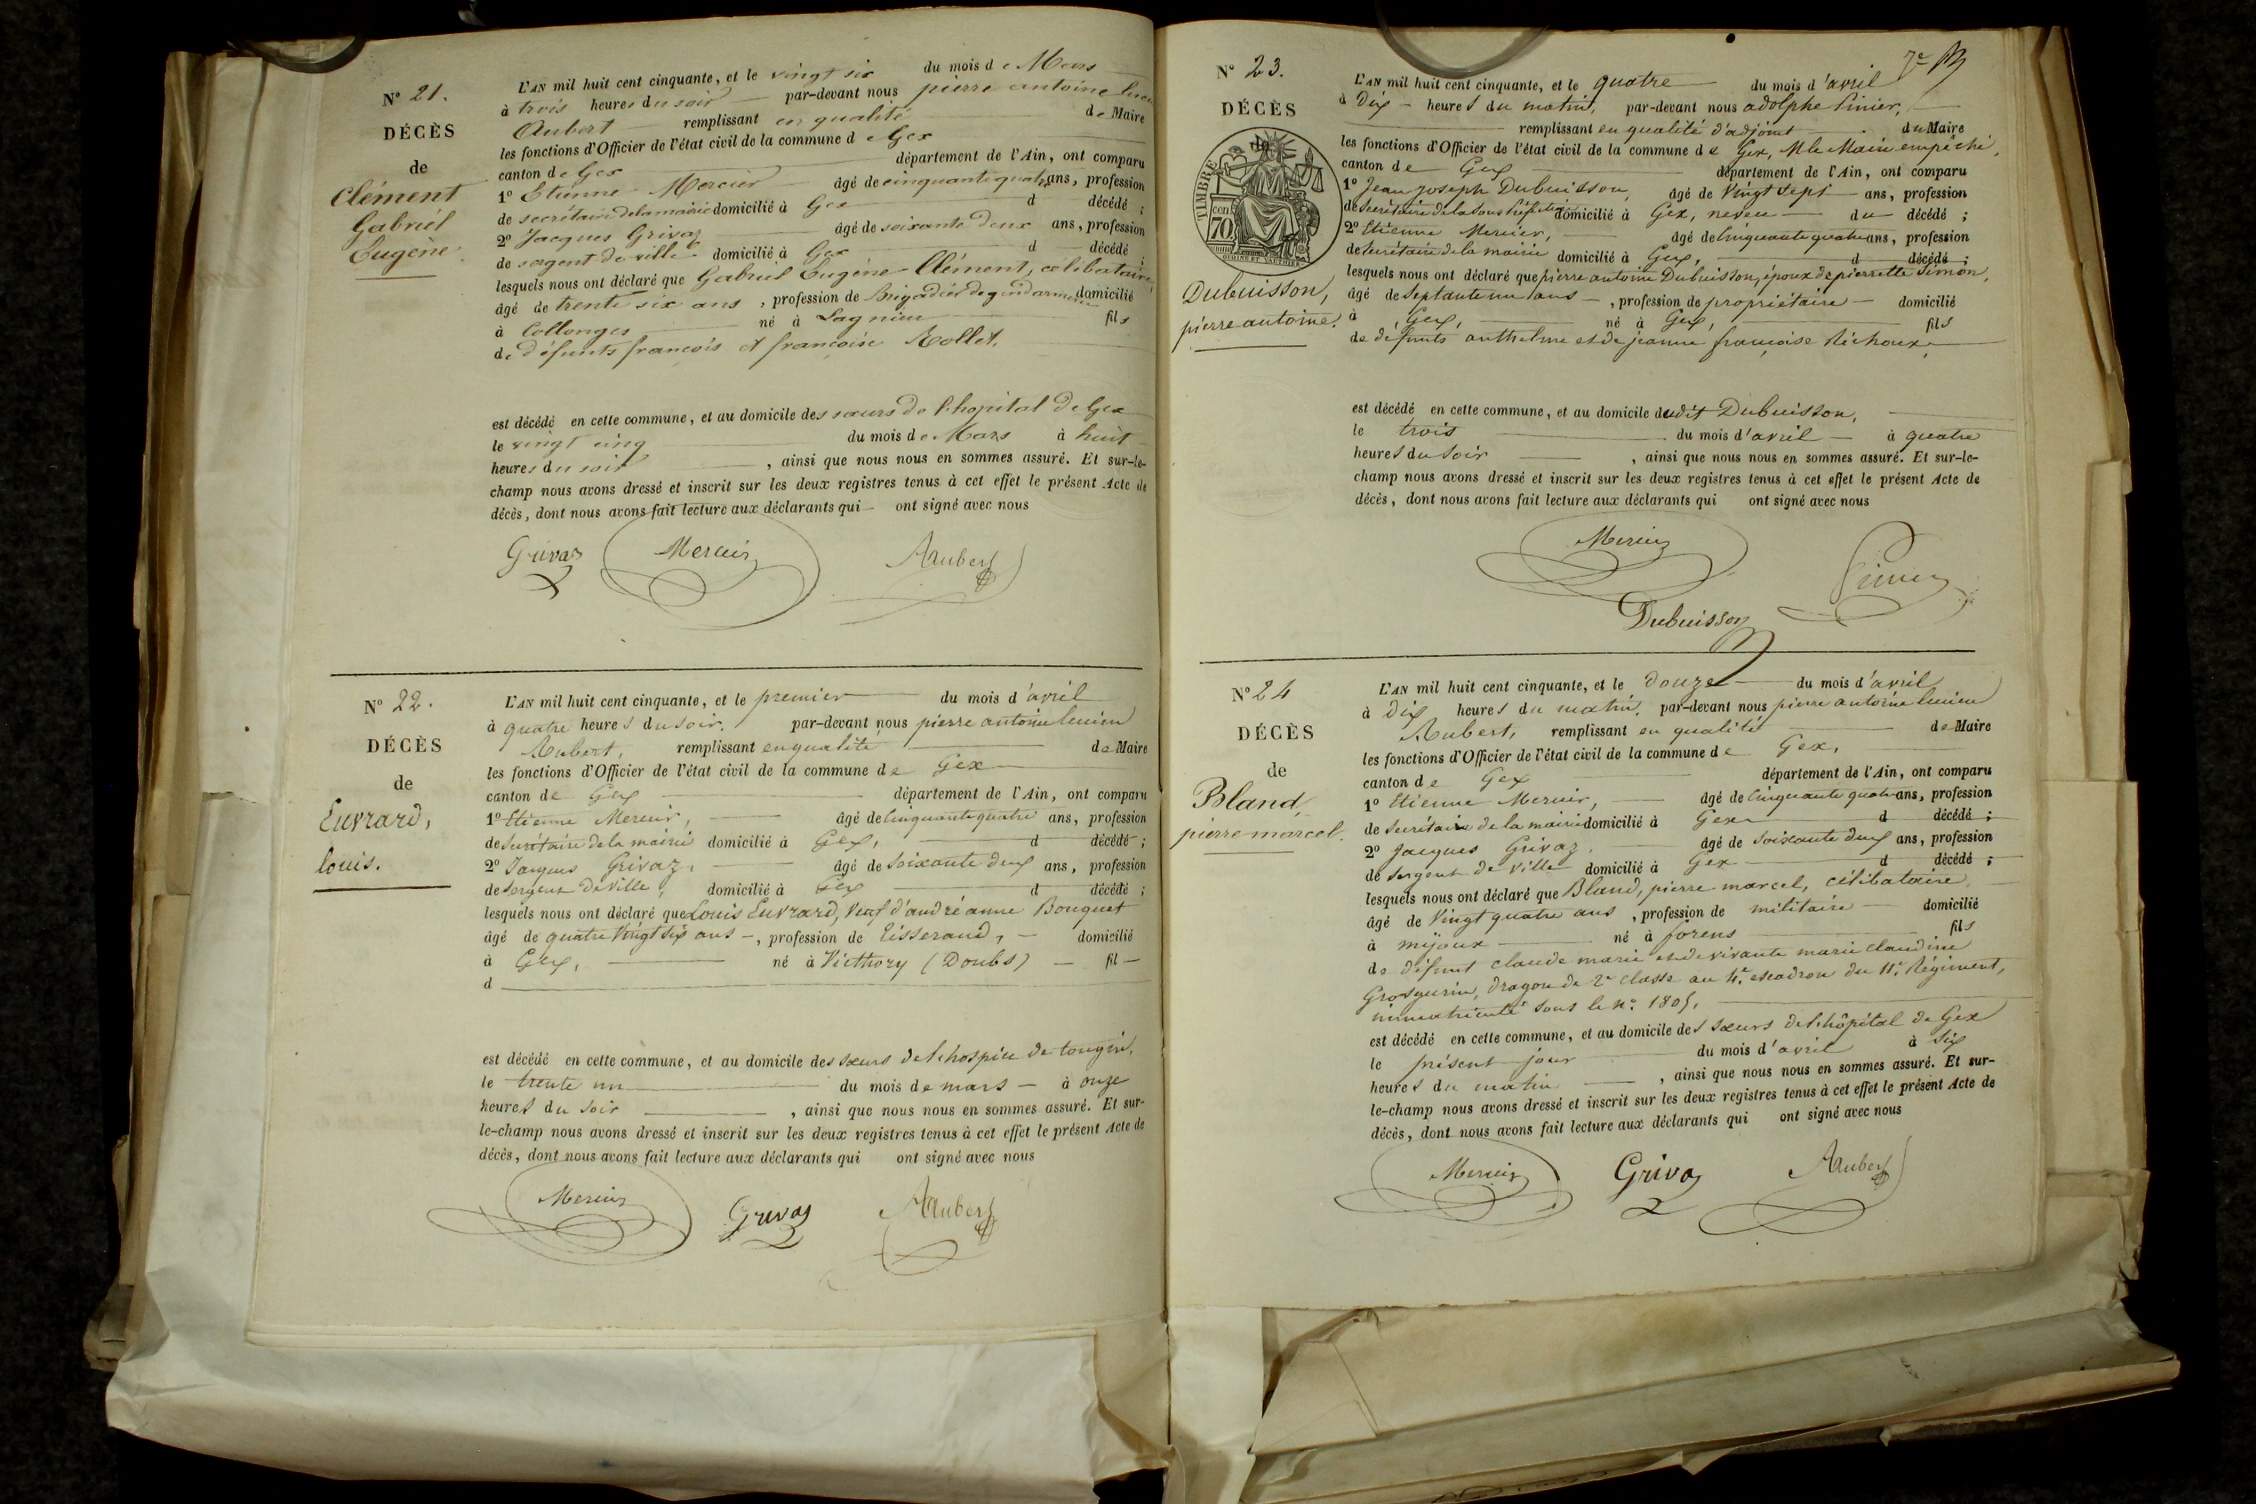 N° 21.
DÉCÈS
de
Clément
Gabriel
Eugène.
L'AN mil huit cent cinquante, et le vingt six du mois de Mars
à trois heures du soir par-devant nous pierre antoine
Aubert remplissant en qualité de Maire
les fonctions d'Officier de l'état civil de la commune de Gex
canton de Gex département de l'Ain, ont comparu
1° Etienne Mercier âgé de cinquante quatre ans, profession
de secrétaire de la mairie domicilié à Gex d décédé ;
2° Jacques Grivaz âgé de soixante deux ans, profession
de sergent de ville domicilié à Gex d décédé ;
lesquels nous ont déclaré que Gabriel Eugène Clément, célibataire,
âgé de trente six ans, profession de Brigadier de gendarmerie domicilié
à Collonges né à Lagnieu fils
de défunts françois et françoise Rollet.
est décédé en cette commune, et au domicile des sœurs de l'hopital de Gex
le vingt cinq du mois de Mars à huit
heures du soir, ainsi que nous nous en sommes assuré. Et sur-le-
champ nous avons dressé et inscrit sur les deux registres tenus à cet effet le présent Acte de
décès, dont nous avons fait lecture aux déclarants qui ont signé avec nous
Grivaz Mercier Aubert
N° 22.
DÉCÈS
de
Euvrard,
louis.
L'AN mil huit cent cinquante, et le premier du mois d'avril
à quatre heures du soir. par-devant nous pierre antoine lucien
Aubert, remplissant en qualité de Maire
les fonctions d'Officier de l'état civil de la commune de Gex
canton de Gex département de l'Ain, ont comparu
1° Etienne Mercier, âgé de Cinquante quatre ans, profession
de Secrétaire de la mairie domicilié à Gex, d décédé ;
2° Jacques Grivaz, âgé de Soixante deux ans, profession
de Sergent de ville, domicilié à Gex d décédé ;
lesquels nous ont déclaré que Louis Euvrard, veuf d'andréanne Bouquet
âgé de quatre vingt six ans, profession de tisserand, domicilié
à Gex, né à Viethorey (Doubs) fil
d
est décédé en cette commune, et au domicile des sœurs de l'hospice de tougin,
le trente un du mois de mars à onze
heures du soir, ainsi que nous nous en sommes assuré. Et sur-
le-champ nous avons dressé et inscrit sur les deux registres tenus à cet effet le présent Acte de
décès, dont nous avons fait lecture aux déclarants qui ont signé avec nous
Mercier Grivaz Aubert
7e
N° 23.
DÉCÈS
de
TIMBRE
cen
70
Dubuisson,
pierre antoine.
L'AN mil huit cent cinquante, et le quatre du mois d'avril
à Dix heures du matin, par-devant nous adolphe
remplissant en qualité d'adjoint du Maire
les fonctions d'Officier de l'état civil de la commune de Gex, M le Maire empêché,
canton de Gex département de l'Ain, ont comparu
1° Jean joseph Dubuisson, âgé de Vingt sept ans, profession
de Secrétaire de la Sous Préfecture domicilié à Gex, neveu du décédé ;
2° Etienne Mercier, âgé de Cinquante quatre ans, profession
de Secrétaire de la mairie domicilié à Gex, d décédé ;
lesquels nous ont déclaré que pierre antoine Dubuisson, époux de pierrette Simon,
âgé de Septante un ans, profession de propriétaire domicilié
à Gex, né à Gex, fils
de défunts anthelme et de jeanne françoise Richoux.
est décédé en cette commune, et au domicile dudit Dubuisson,
le trois du mois d'avril à quatre
heures du soir, ainsi que nous nous en sommes assuré. Et sur-le-
champ nous avons dressé et inscrit sur les deux registres tenus à cet effet le présent Acte de
décès, dont nous avons fait lecture aux déclarants qui ont signé avec nous
Mercier
Dubuisson
N° 24
DÉCÈS
de
Bland,
pierre marcel.
L'AN mil huit cent cinquante, et le douze du mois d'avril
à Dix heures du matin, par-devant nous pierre antoine lucien
Aubert, remplissant en qualité de Maire
les fonctions d'Officier de l'état civil de la commune de Gex,
canton de Gex département de l'Ain, ont comparu
1° Etienne Mercier, âgé de Cinquante quatre ans, profession
de Secrétaire de la mairie domicilié à Gex d décédé ;
2° Jacques Grivaz, âgé de Soixante deux ans, profession
de Sergent de ville domicilié à Gex d décédé ;
lesquels nous ont déclaré que Bland, pierre marcel, célibataire,
âgé de Vingt quatre ans, profession de militaire domicilié
à mijoux né à forens fils
de défunt claude marie et de vivante marie claudine
Grosgurin, dragon de 2e classe au 4e escadron du 11e Régiment,
immatriculé sous le n° 1805.
est décédé en cette commune, et au domicile des sœurs de l'hôpital de Gex
le présent jour du mois d'avril à six
heures du matin, ainsi que nous nous en sommes assuré. Et sur-
le-champ nous avons dressé et inscrit sur les deux registres tenus à cet effet le présent Acte de
décès, dont nous avons fait lecture aux déclarants qui ont signé avec nous
Mercier Grivaz Aubert